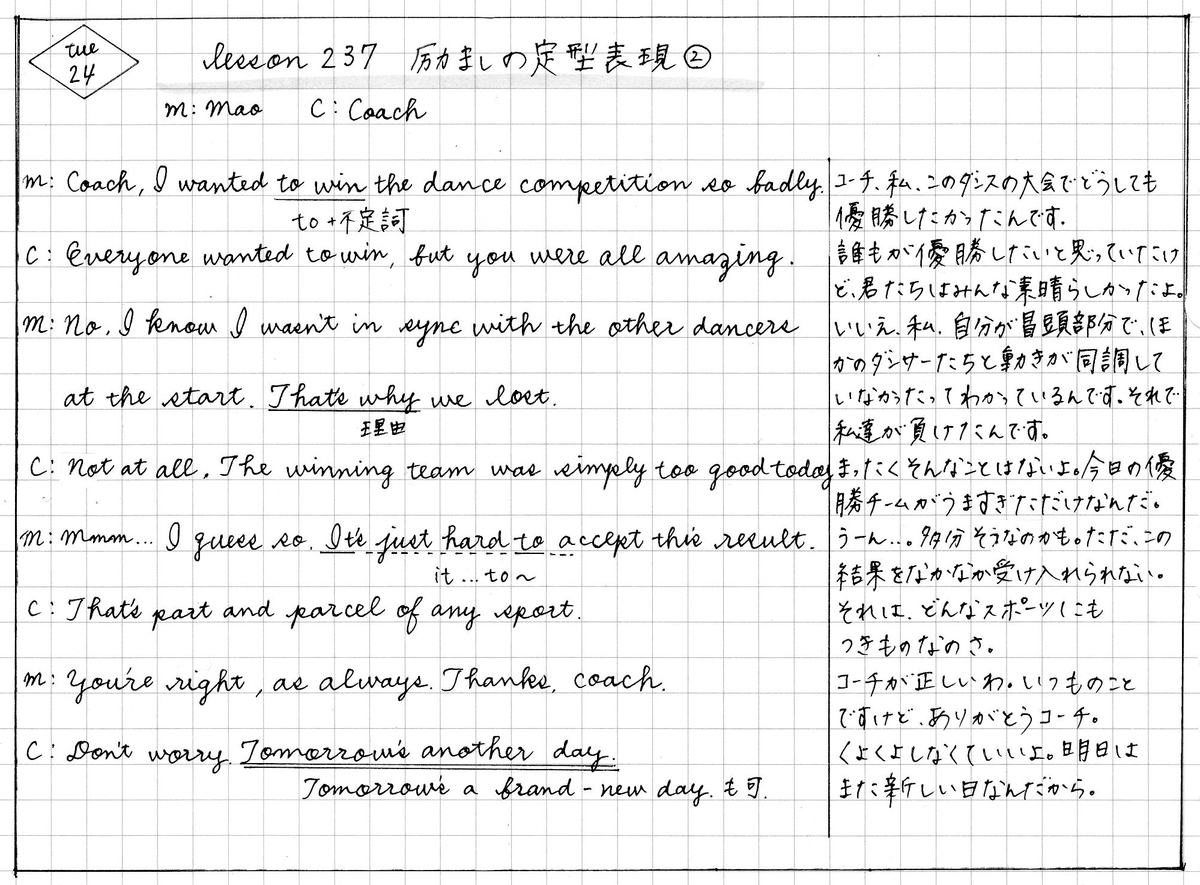 tue
24
lesson 237 励ましの定型表現②
m: mao C: Coach
m: Coach, I wanted to win the dance competition so badly.
to+不定詞
コーチ、私、このダンスの大会でどうしても
優勝したかったんです.
C: Everyone wanted to win, but you were all amazing.
誰もが優勝したいと思っていたけ
ど、君たちはみんな素晴らしかったよ。
m: No, I know I wasn't in sync with the other dancers
at the start. That's why we lost.
理由
いいえ、私、自分が冒頭部分で、ほ
かのダンサーたちと動きが同調して
いなかったってわかっているんです。それで
私達が負けたんです。
C: Not at all. The winning team was simply too good today
まったくそんなことはないよ。今日の優
勝チームがうますぎただけなんだ。
m: mmm... I guess so. It's just hard to accept this result.
it...to〜
うーん...。多分そうなのかも。ただ、この
結果をなかなか受け入れられない。
C: That's part and parcel of any sport.
それは、どんなスポーツにも
つきものなのさ。
m: You're right, as always. Thanks, coach.
コーチが正しいわ。いつものこと
ですけど、ありがとうコーチ。
C: Don't worry. Tomorrow's another day.
Tomorrow's a brand-new day. も可.
くよくよしなくていいよ。明日は
また新しい日なんだから。